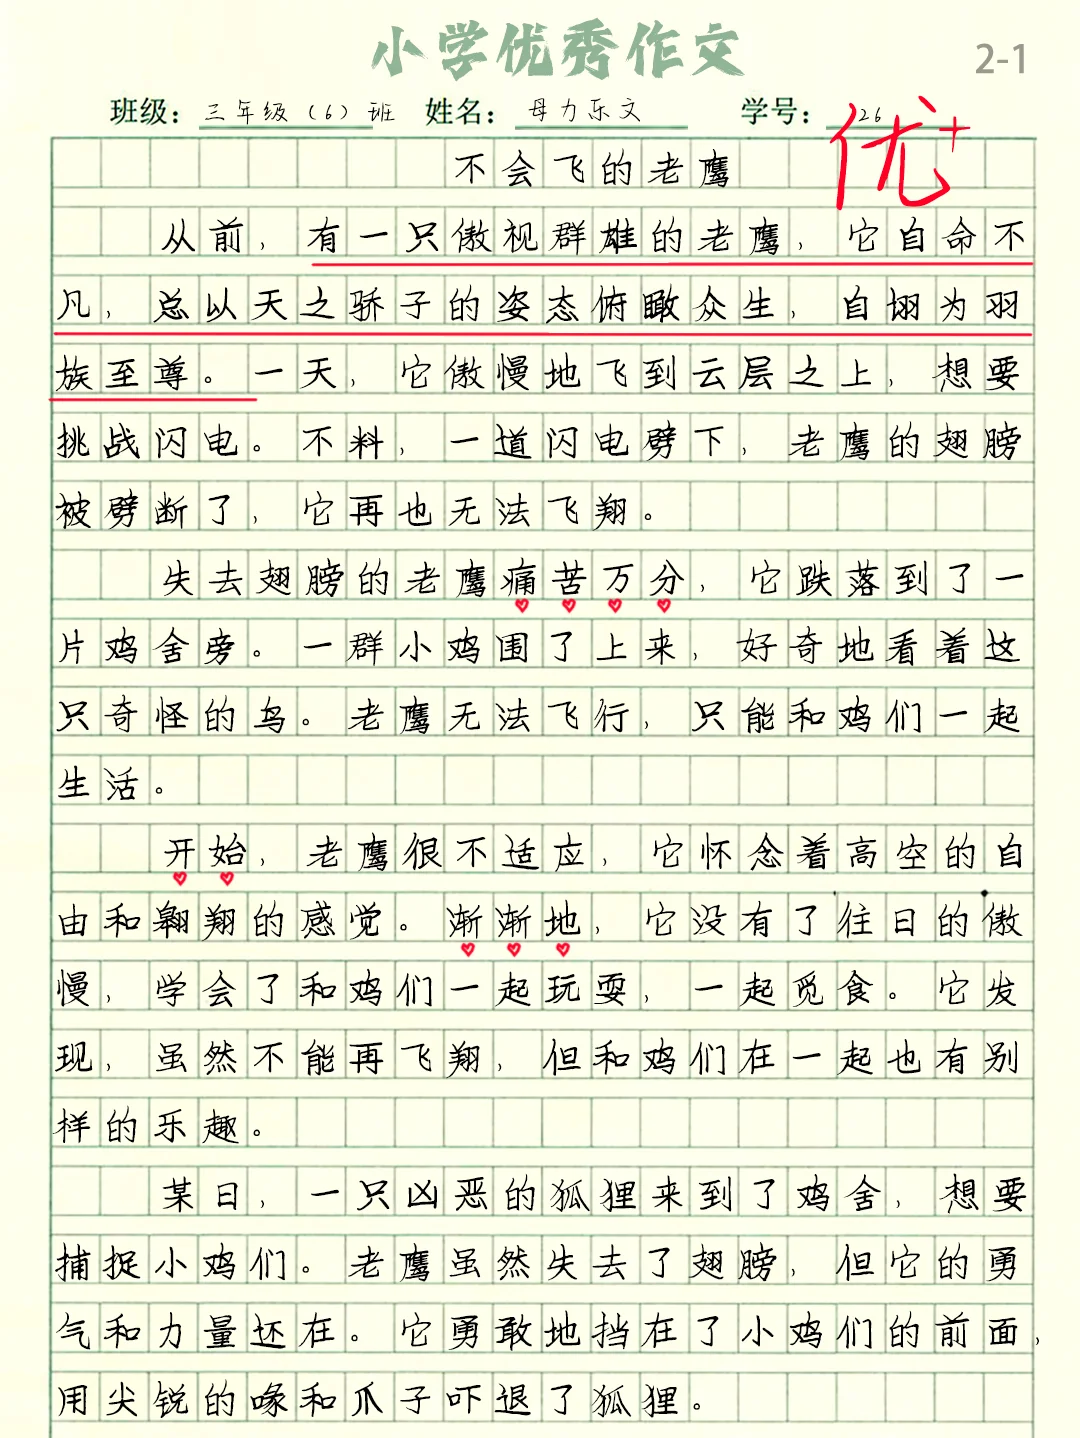 小学优秀作文
2-1
班级：三年级（6）班 姓名：母力乐文 学号：26
优+
不会飞的老鹰
从前，有一只傲视群雄的老鹰，它自命不
凡，总以天之骄子的姿态俯瞰众生，自诩为羽
族至尊。一天，它傲慢地飞到云层之上，想要
挑战闪电。不料，一道闪电劈下，老鹰的翅膀
被劈断了，它再也无法飞翔。
失去翅膀的老鹰痛苦万分，它跌落到了一
片鸡舍旁。一群小鸡围了上来，好奇地看着这
只奇怪的鸟。老鹰无法飞行，只能和鸡们一起
生活。
开始，老鹰很不适应，它怀念着高空的自
由和翱翔的感觉。渐渐地，它没有了往日的傲
慢，学会了和鸡们一起玩耍，一起觅食。它发
现，虽然不能再飞翔，但和鸡们在一起也有别
样的乐趣。
某日，一只凶恶的狐狸来到了鸡舍，想要
捕捉小鸡们。老鹰虽然失去了翅膀，但它的勇
气和力量还在。它勇敢地挡在了小鸡们的前面，
用尖锐的喙和爪子吓退了狐狸。